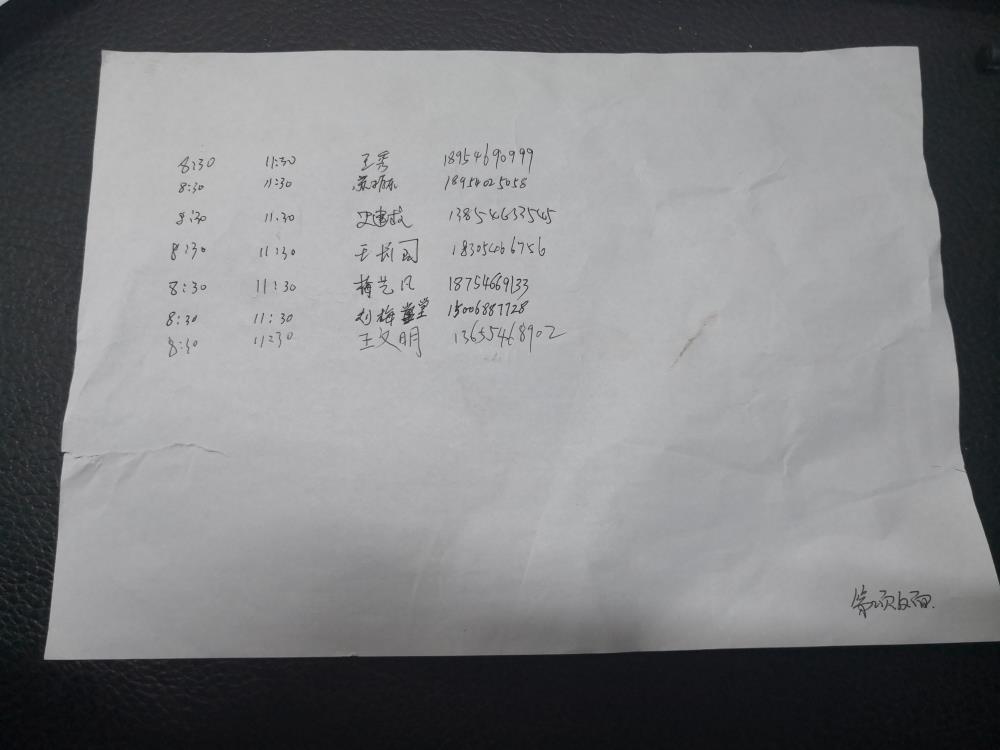 8:30 11:30 王秀 18954690999
8:30 11:30 18954025058
8:30 11:30 史建成 13854633545
8:30 11:30 王长园 18305466756
8:30 11:30 梅艺凡 18754669133
8:30 11:30 刘梅 15006887728
8:30 11:30 王文明 13655468902
第2页白面.